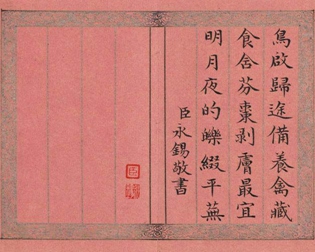 鳥啟歸途備養禽藏
食舍芬棗剥膚最宜
明月夜的皪綴平蕪
臣永錫敬書